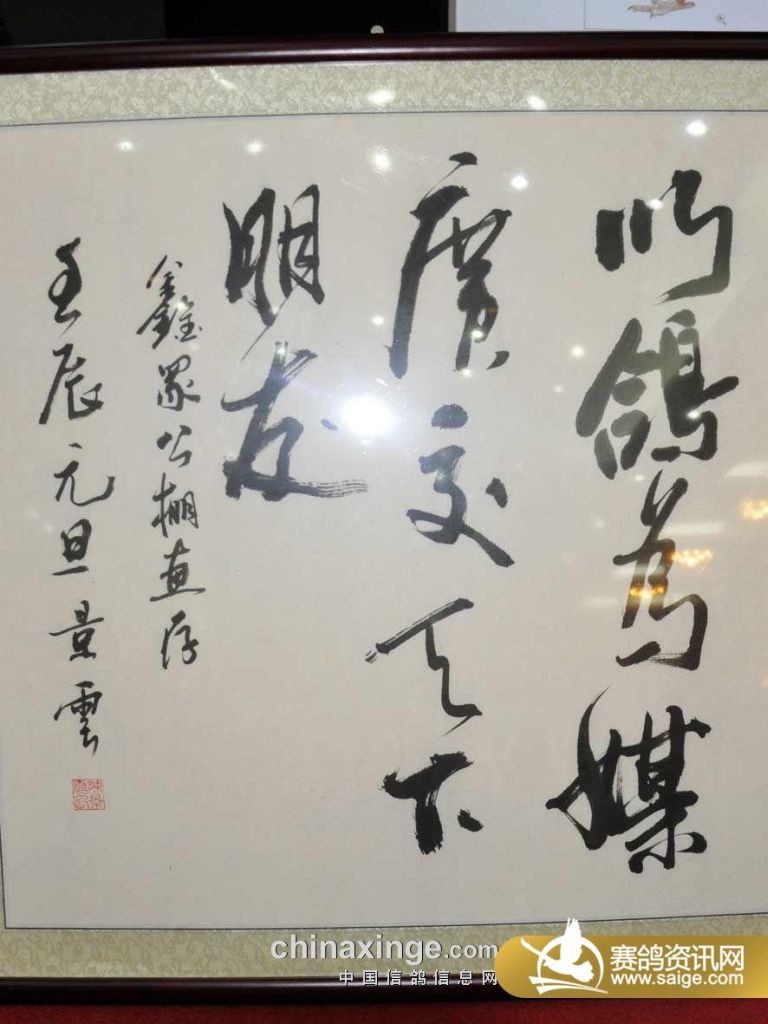 以鸽为媒
廣交天下
朋友
鑫眾公棚惠存
壬辰元旦景雲
chinaxinge.com
中国信鸽信息网
赛鸽资讯网
www.saige.com